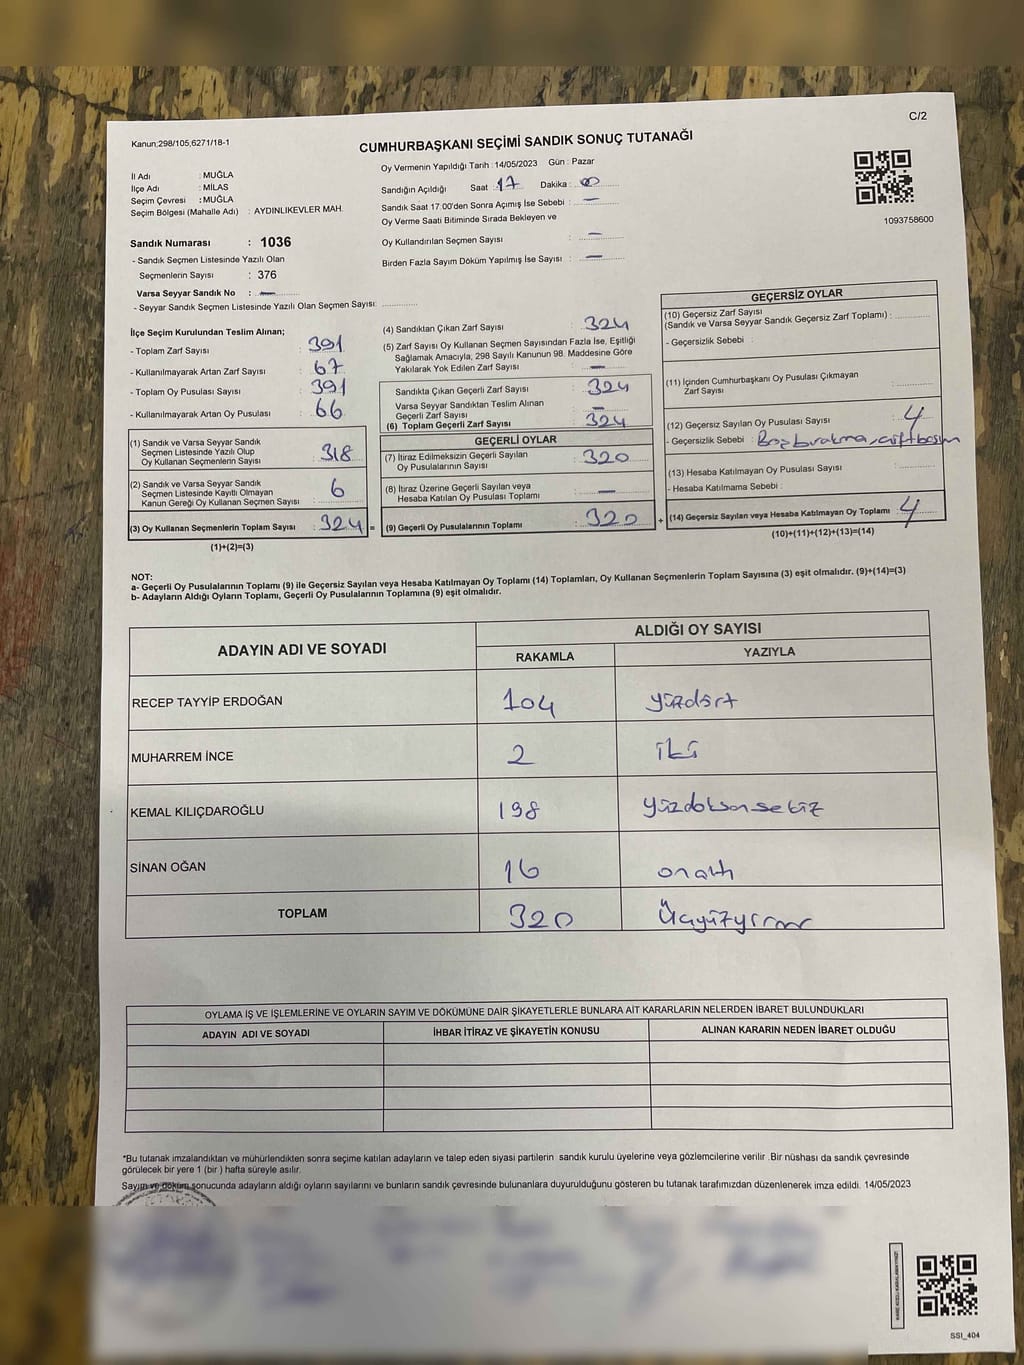 C/2
Kanun:298/105,6271/18-1
CUMHURBAŞKANI SEÇİMİ SANDIK SONUÇ TUTANAĞI
İl Adı : MUĞLA
İlçe Adı : MİLAS
Seçim Çevresi : MUĞLA
Seçim Bölgesi (Mahalle Adı) : AYDINLIKEVLER MAH.
Oy Vermenin Yapıldığı Tarih : 14/05/2023 Gün : Pazar
Sandığın Açıldığı Saat : 17 Dakika : 00
Sandık Saat 17.00'den Sonra Açımış İse Sebebi : —
Oy Verme Saati Bitiminde Sırada Bekleyen ve
Oy Kullandırılan Seçmen Sayısı : —
Birden Fazla Sayım Döküm Yapılmış İse Sayısı : —
1093758600
Sandık Numarası : 1036
- Sandık Seçmen Listesinde Yazılı Olan
Seçmenlerin Sayısı : 376
Varsa Seyyar Sandık No : —
- Seyyar Sandık Seçmen Listesinde Yazılı Olan Seçmen Sayısı:
İlçe Seçim Kurulundan Teslim Alınan;
- Toplam Zarf Sayısı : 391
- Kullanılmayarak Artan Zarf Sayısı : 67
- Toplam Oy Pusulası Sayısı : 391
- Kullanılmayarak Artan Oy Pusulası : 66
(1) Sandık ve Varsa Seyyar Sandık
Seçmen Listesinde Yazılı Olup
Oy Kullanan Seçmenlerin Sayısı : 318
(2) Sandık ve Varsa Seyyar Sandık
Seçmen Listesinde Kayıtlı Olmayan
Kanun Gereği Oy Kullanan Seçmen Sayısı : 6
(3) Oy Kullanan Seçmenlerin Toplam Sayısı : 324 =
(1)+(2)=(3)
(4) Sandıktan Çıkan Zarf Sayısı : 324
(5) Zarf Sayısı Oy Kullanan Seçmen Sayısından Fazla İse, Eşitliği
Sağlamak Amacıyla, 298 Sayılı Kanunun 98. Maddesine Göre
Yakılarak Yok Edilen Zarf Sayısı : —
Sandıkta Çıkan Geçerli Zarf Sayısı : 324
Varsa Seyyar Sandıktan Teslim Alınan
Geçerli Zarf Sayısı : —
(6) Toplam Geçerli Zarf Sayısı : 324
GEÇERLİ OYLAR
(7) İtiraz Edilmeksizin Geçerli Sayılan
Oy Pusulalarının Sayısı : 320
(8) İtiraz Üzerine Geçerli Sayılan veya
Hesaba Katılan Oy Pusulası Toplamı : —
(9) Geçerli Oy Pusulalarının Toplamı : 320 +
GEÇERSİZ OYLAR
(10) Geçersiz Zarf Sayısı
(Sandık ve Varsa Seyyar Sandık Geçersiz Zarf Toplamı) :
- Geçersizlik Sebebi :
(11) İçinden Cumhurbaşkanı Oy Pusulası Çıkmayan
Zarf Sayısı :
(12) Geçersiz Sayılan Oy Pusulası Sayısı : 4
- Geçersizlik Sebebi : Boş bırakma, çift basım
(13) Hesaba Katılmayan Oy Pusulası Sayısı :
- Hesaba Katılmama Sebebi :
(14) Geçersiz Sayılan veya Hesaba Katılmayan Oy Toplamı : 4
(10)+(11)+(12)+(13)=(14)
NOT:
a- Geçerli Oy Pusulalarının Toplamı (9) ile Geçersiz Sayılan veya Hesaba Katılmayan Oy Toplamı (14) Toplamları, Oy Kullanan Seçmenlerin Toplam Sayısına (3) eşit olmalıdır. (9)+(14)=(3)
b- Adayların Aldığı Oyların Toplamı, Geçerli Oy Pusulalarının Toplamına (9) eşit olmalıdır.
ADAYIN ADI VE SOYADI
ALDIĞI OY SAYISI
RAKAMLA YAZIYLA
RECEP TAYYİP ERDOĞAN 104 yüzdört
MUHARREM İNCE 2 iki
KEMAL KILIÇDAROĞLU 198 yüzdoksansekiz
SİNAN OĞAN 16 onaltı
TOPLAM 320 Üçyüzyirmi
OYLAMA İŞ VE İŞLEMLERİNE VE OYLARIN SAYIM VE DÖKÜMÜNE DAİR ŞİKAYETLERLE BUNLARA AİT KARARLARIN NELERDEN İBARET BULUNDUKLARI
ADAYIN ADI VE SOYADI İHBAR İTİRAZ VE ŞİKAYETİN KONUSU ALINAN KARARIN NEDEN İBARET OLDUĞU
*Bu tutanak imzalandıktan ve mühürlendikten sonra seçime katılan adayların ve talep eden siyasi partilerin sandık kurulu üyelerine veya gözlemcilerine verilir .Bir nüshası da sandık çevresinde
görülecek bir yere 1 (bir ) hafta süreyle asılır.
Sayım ve döküm sonucunda adayların aldığı oyların sayılarını ve bunların sandık çevresinde bulunanlara duyurulduğunu gösteren bu tutanak tarafımızdan düzenlenerek imza edildi. 14/05/2023
SSI_404